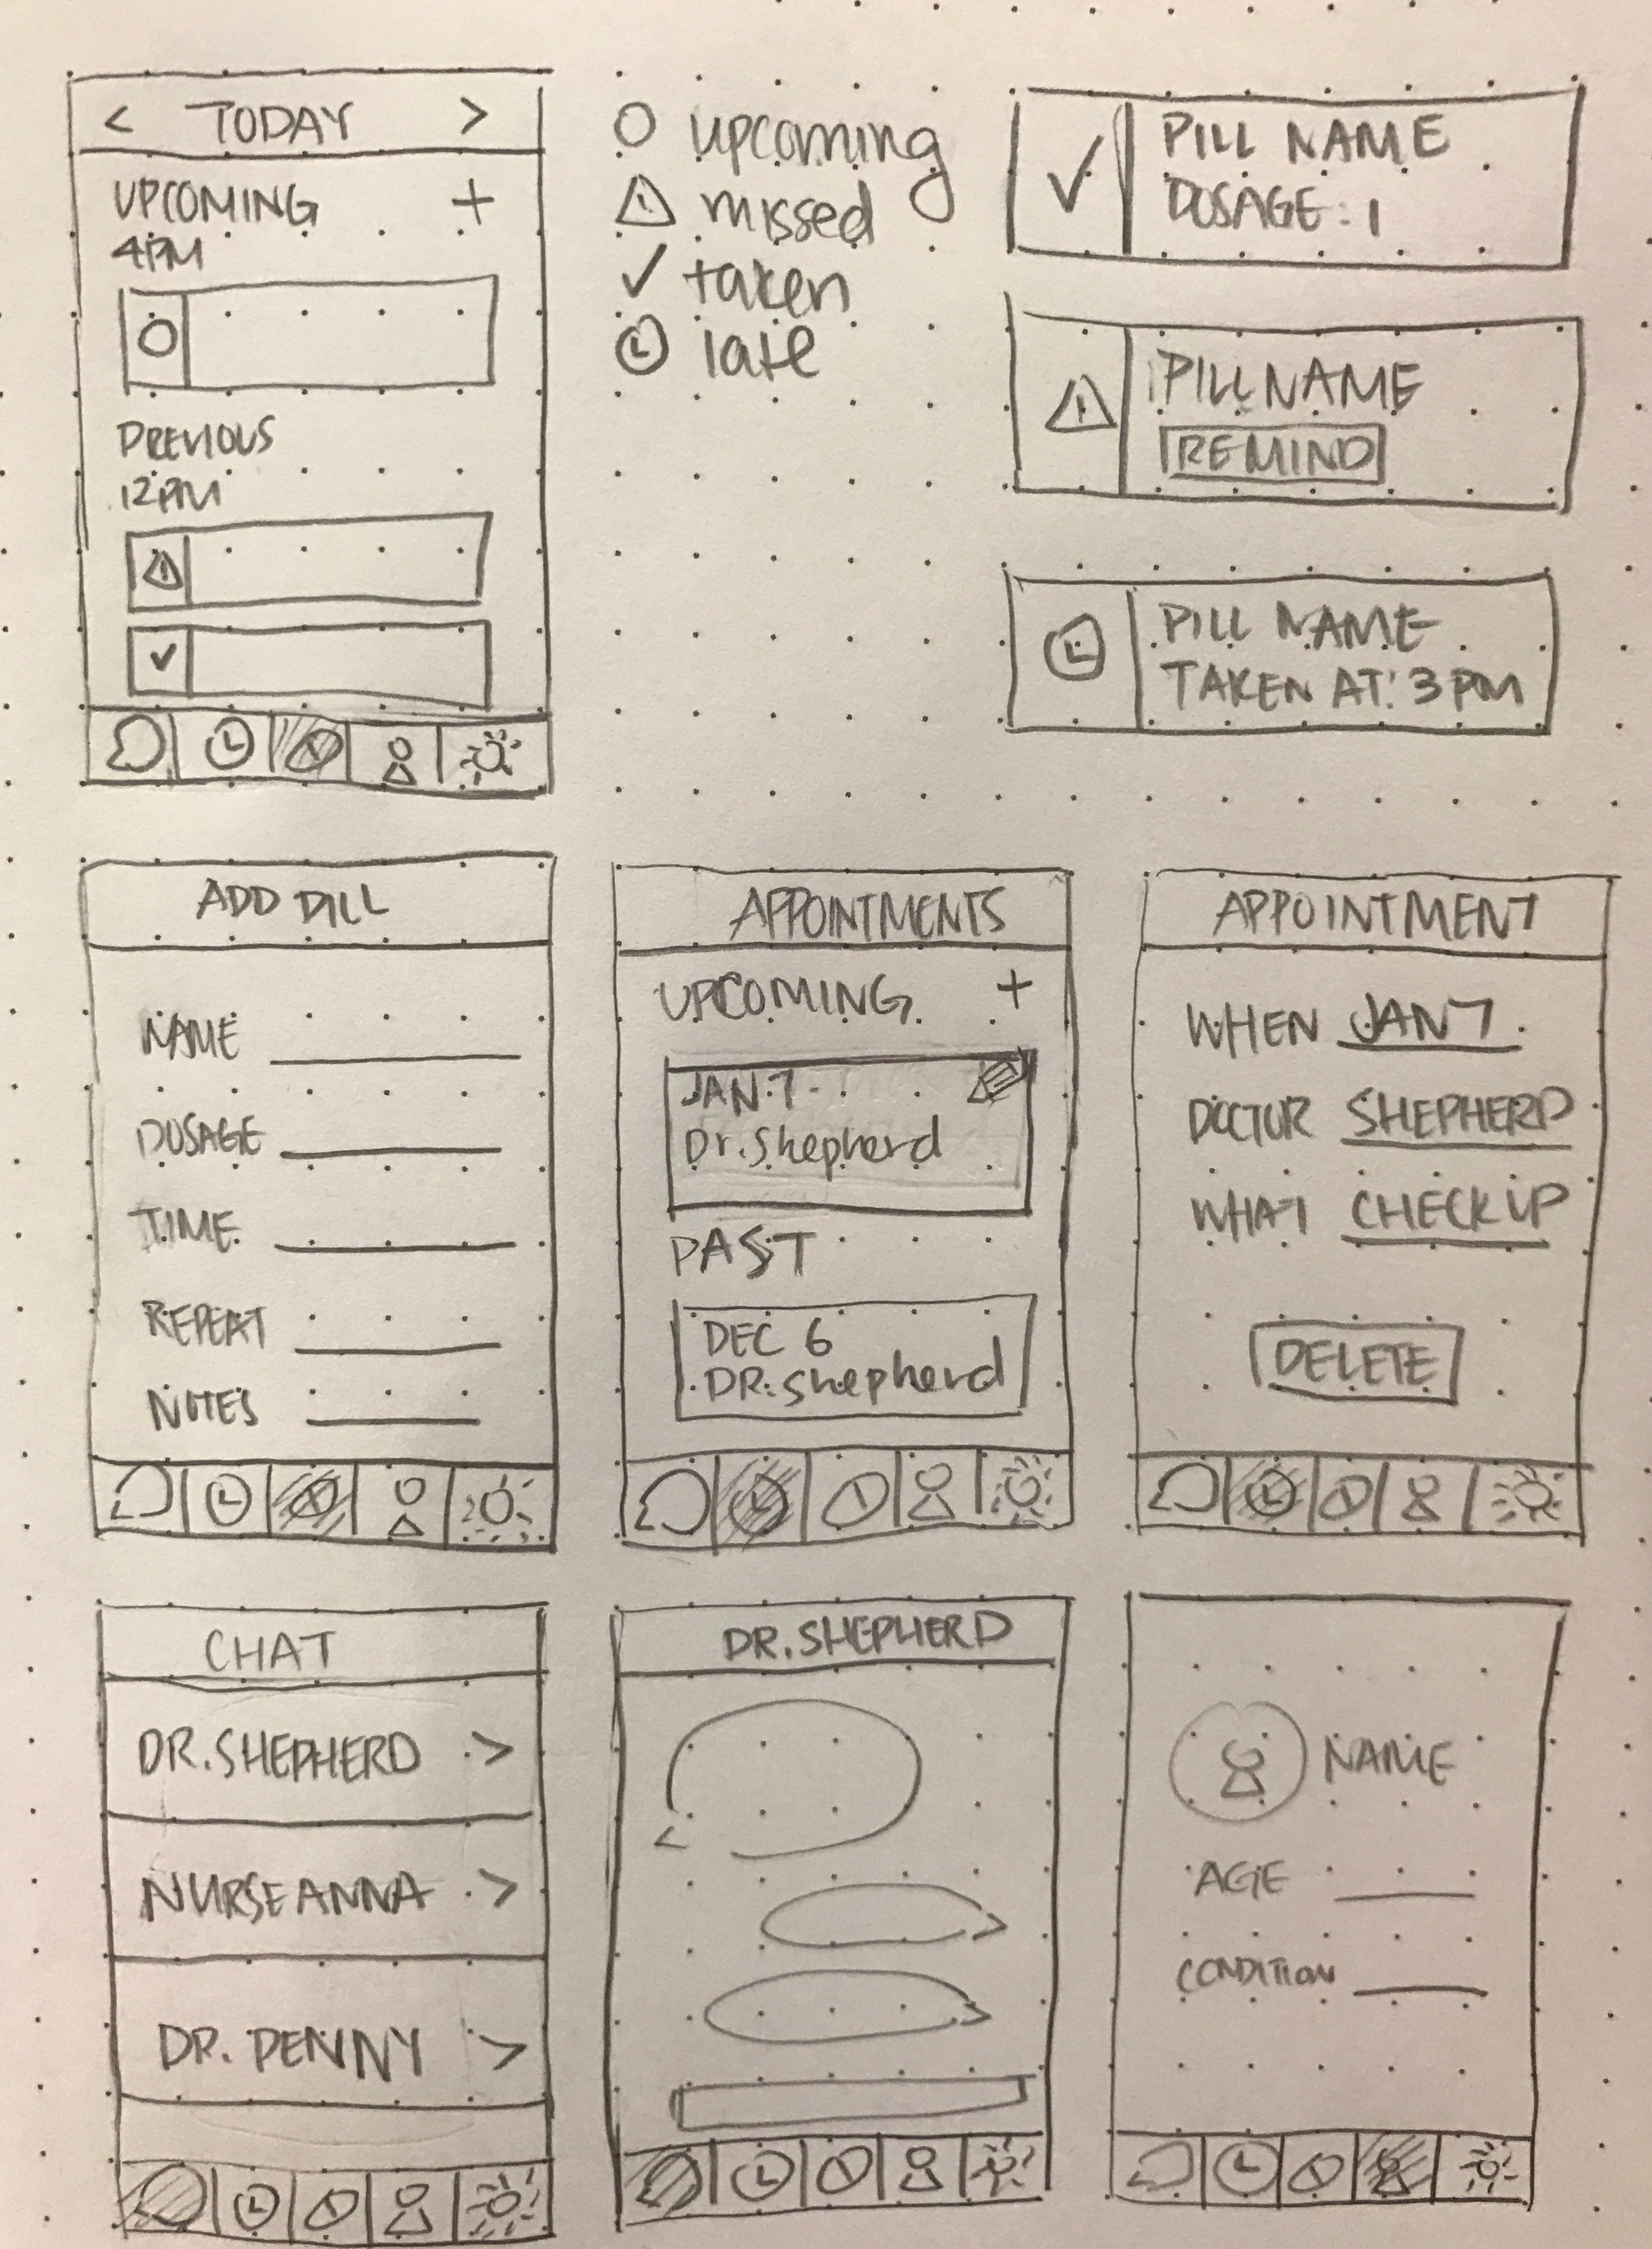 < TODAY >
UPCOMING +
4PM
PREVIOUS
12PM
upcoming
missed
taken
late
PILL NAME
DOSAGE: 1
PILL NAME
REMIND
PILL NAME
TAKEN AT: 3 PM
ADD PILL
NAME
DOSAGE
TIME
REPEAT
NOTES
APPOINTMENTS
UPCOMING +
JAN 7
Dr. Shepherd
PAST
DEC 6
DR. Shepherd
APPOINTMENT
WHEN JAN 7
DOCTOR SHEPHERD
WHAT CHECK UP
DELETE
CHAT
DR. SHEPHERD >
NURSE ANNA >
DR. PENNY >
DR. SHEPHERD
NAME
AGE
CONDITION